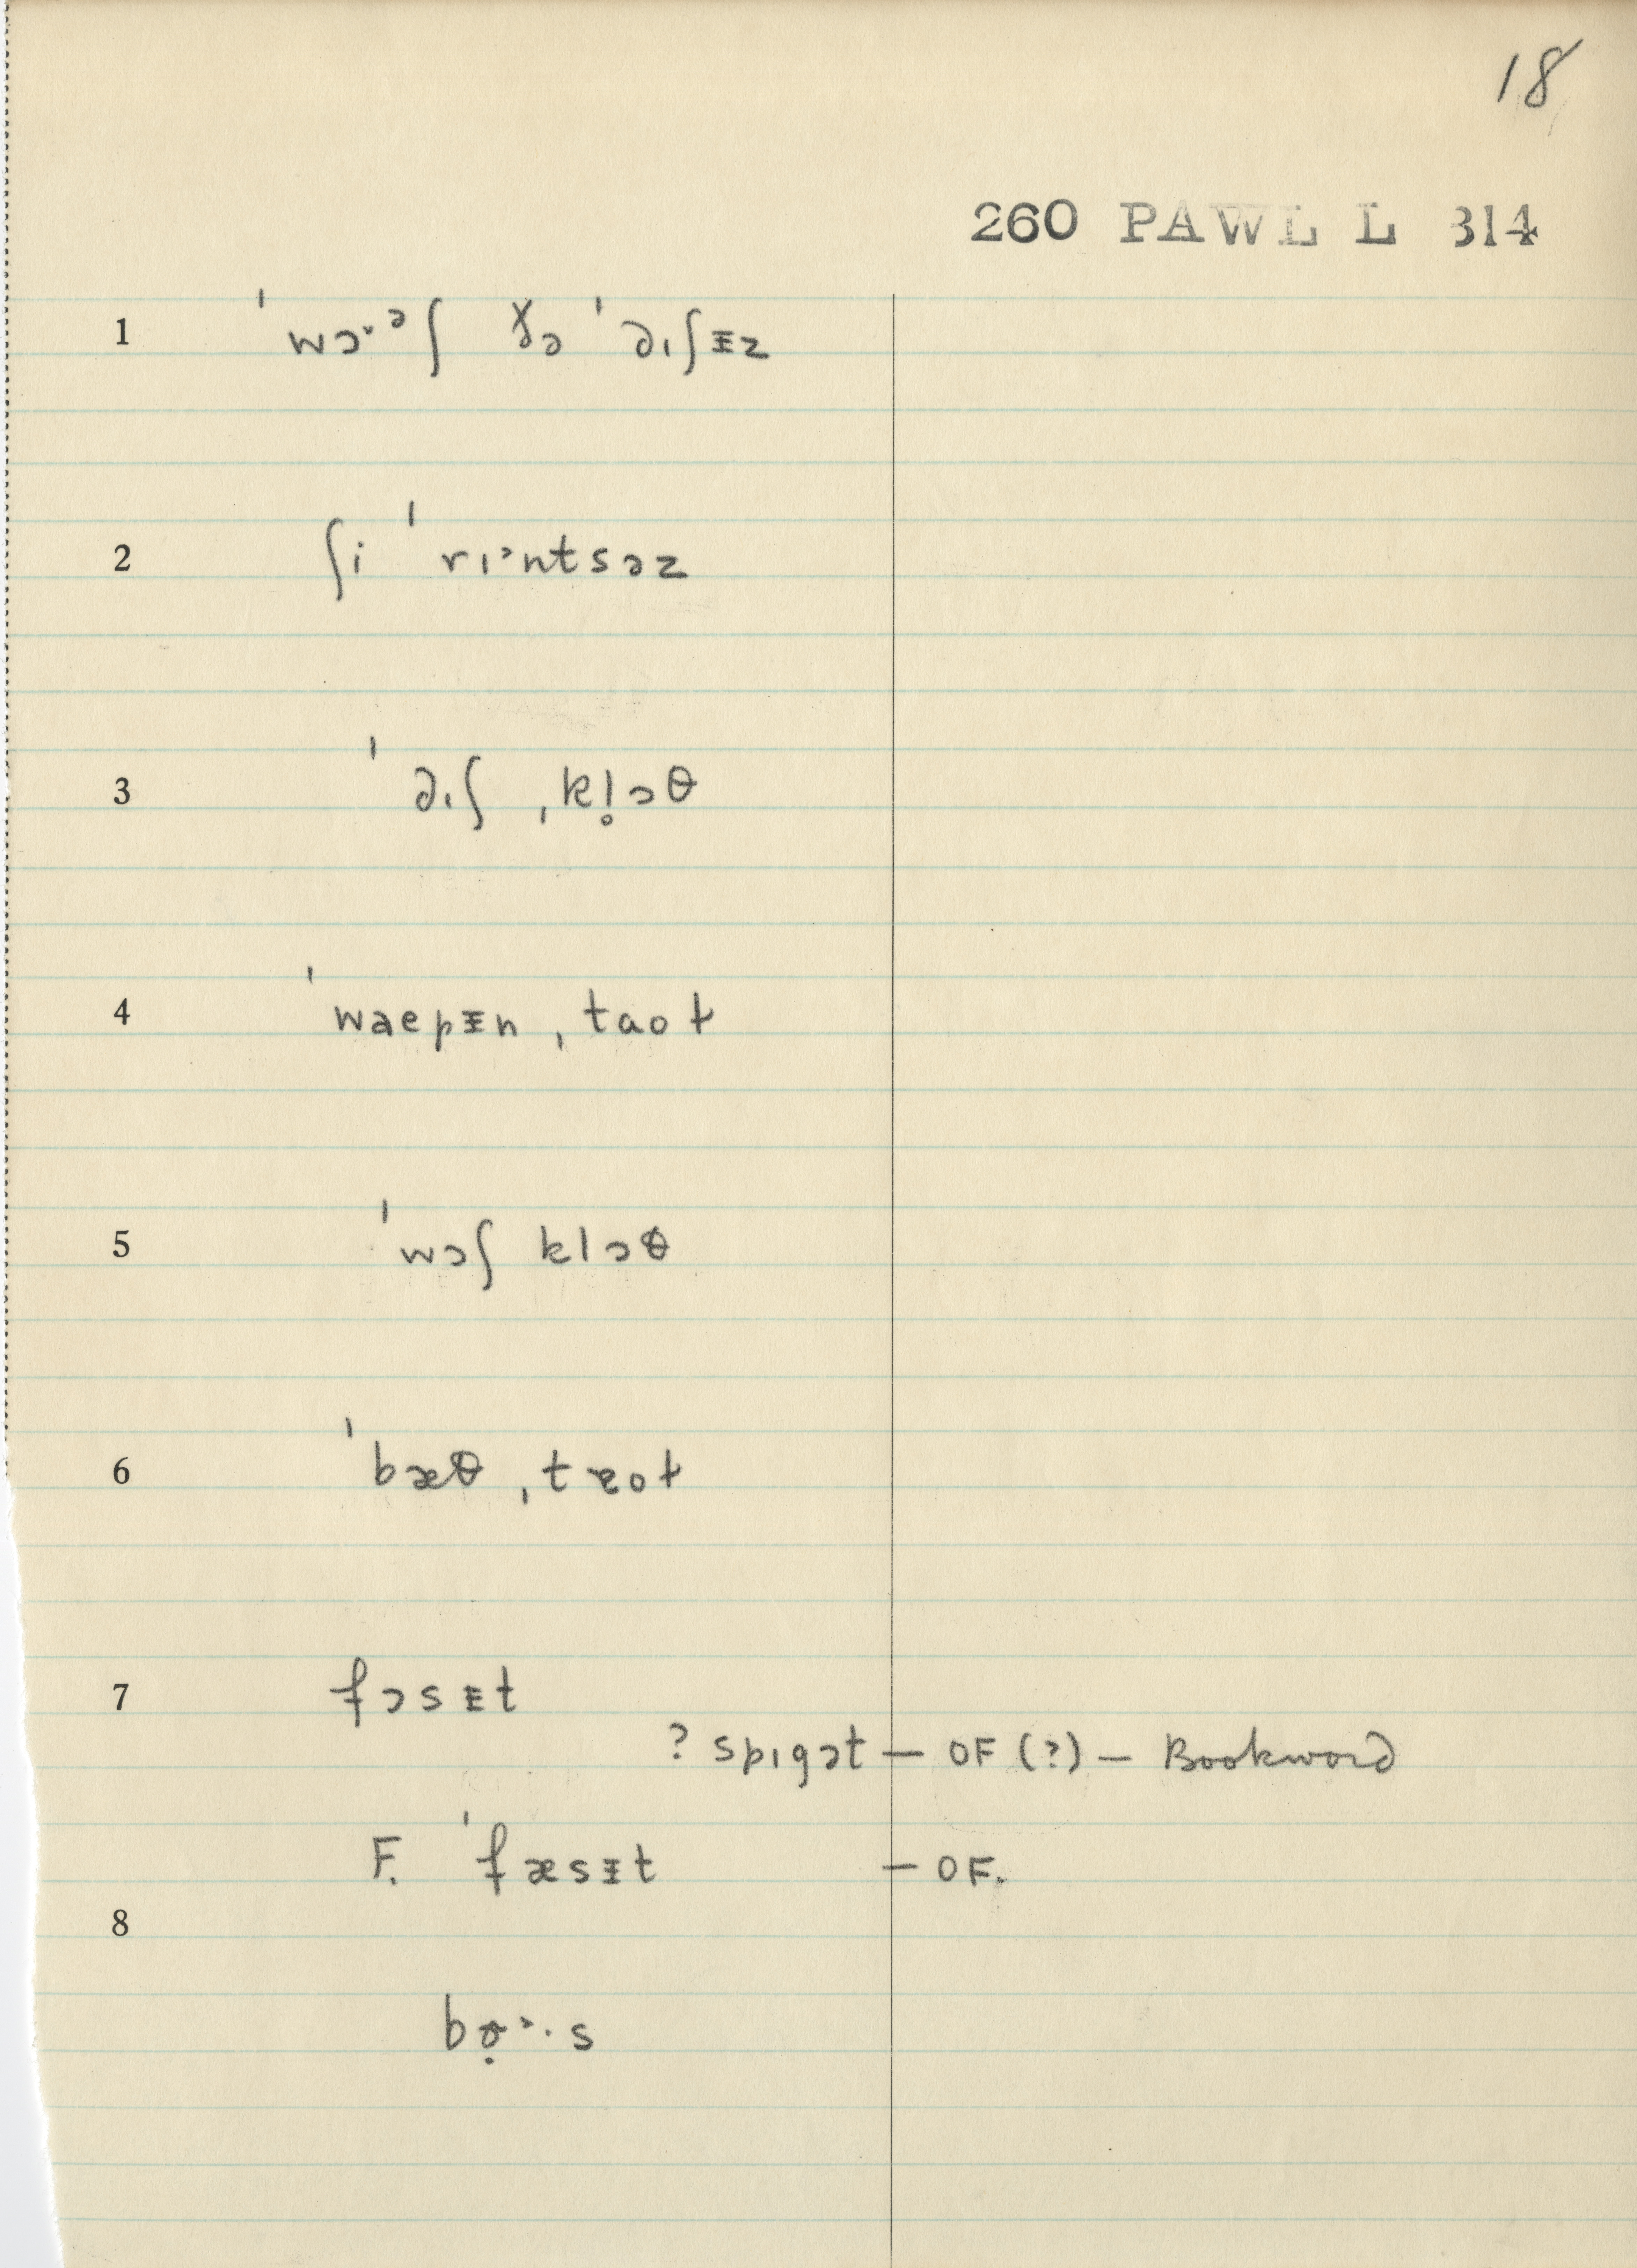 18
260 PAWL L 314
1 ˈwɔˑᵊʃ ðə ˈdɪʃɨz
2 ʃi ˈrɪᵊntsəz
3 ˈdɪʃ ˌkl̥ɔθ
4 ˈwaepɨn ˌtaoɫ
5 ˈwɔʃ klɔθ
6 ˈbæθ ˌtæoɫ
7 fɔsɨt
? spɪgət — OF (?) — Bookword
F. ˈfæsɨt — OF.
8
bɵ̣ᵊ·s